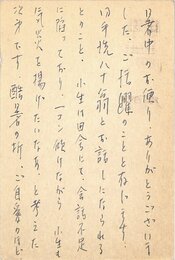 暑中のお便り、ありがとうございま
した。ご活躍のことと存じます。
八十翁とお話しになられる
とのこと、小生は田舎にて、会話不足
に陥っており 一コン傾けながら 小生も
気炎を揚げたいなあと考えた
次第です。酷暑の折、ご自愛のほど